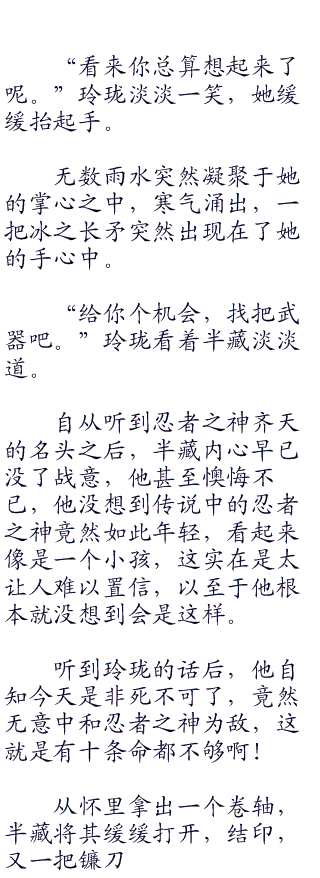 “看来你总算想起来了
呢。”玲珑淡淡一笑，她缓
缓抬起手。
无数雨水突然凝聚于她
的掌心之中，寒气涌出，一
把冰之长矛突然出现在了她
的手心中。
“给你个机会，找把武
器吧。”玲珑看着半藏淡淡
道。
自从听到忍者之神齐天
的名头之后，半藏内心早已
没了战意，他甚至懊悔不
已，他没想到传说中的忍者
之神竟然如此年轻，看起来
像是一个小孩，这实在是太
让人难以置信，以至于他根
本就没想到会是这样。
听到玲珑的话后，他自
知今天是非死不可了，竟然
无意中和忍者之神为敌，这
就是有十条命都不够啊！
从怀里拿出一个卷轴，
半藏将其缓缓打开，结印，
又一把镰刀